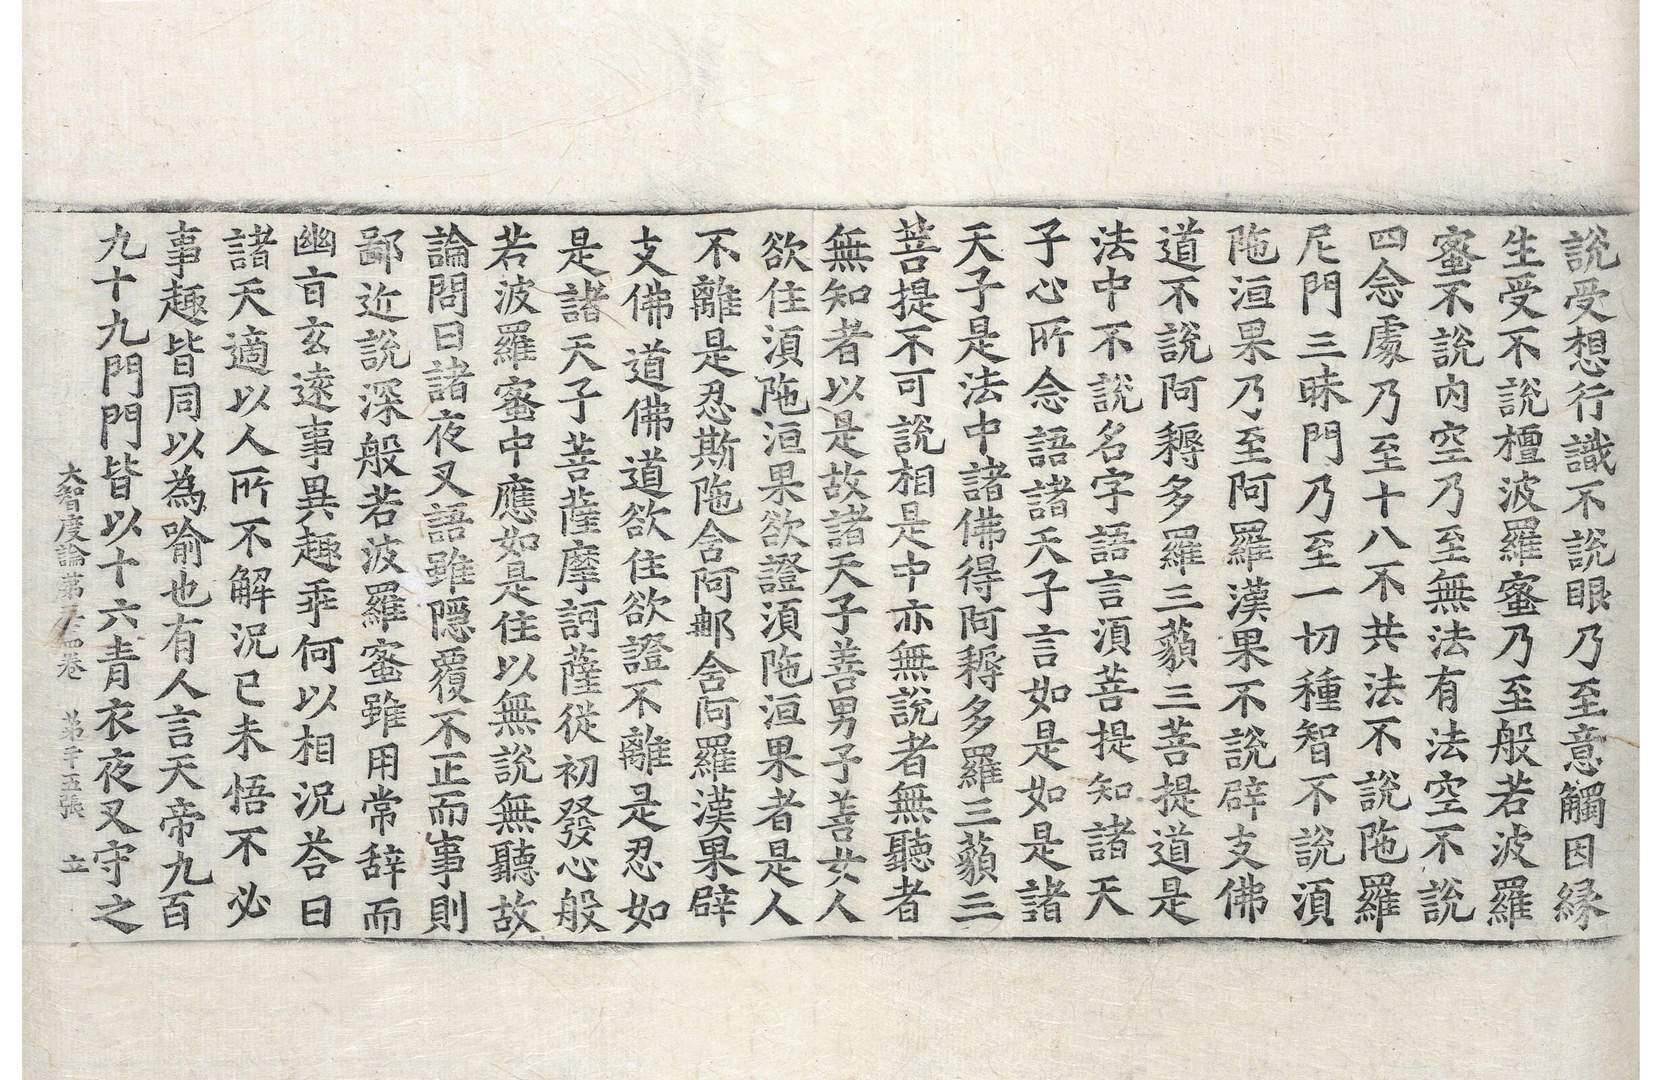 說受想行識不說眼乃至意觸因縁
生受不說檀波羅蜜乃至般若波羅
蜜不說内空乃至無法有法空不說
四念處乃至十八不共法不說陁羅
尼門三昧門乃至一切種智不說湏
陁洹果乃至阿羅漢果不說辟支佛
道不說阿耨多羅三藐三菩提道是
法中不說名字語言湏菩提知諸天
子心所念語諸天子言如是如是諸
天子是法中諸佛得阿耨多羅三藐三
菩提不可說相是中亦無說者無聽者
無知者以是故諸天子善男子善女人
欲住湏陁洹果欲證湏陁洹果者是人
不離是忍斯陁含阿那含阿羅漢果辟
支佛道佛道欲住欲證不離是忍如
是諸天子菩薩摩訶薩從初發心般
若波羅蜜中應如是住以無說無聽故
論問曰諸夜叉語雖隱覆不正而事則
鄙近說深般若波羅蜜雖用常辭而
幽旨玄遠事異趣乖何以相況荅曰
諸天適以人所不解況已未悟不必
事趣皆同以為喻也有人言天帝九百
九十九門門皆以十六青衣夜叉守之
大智度論第五十四卷 第十五張 立